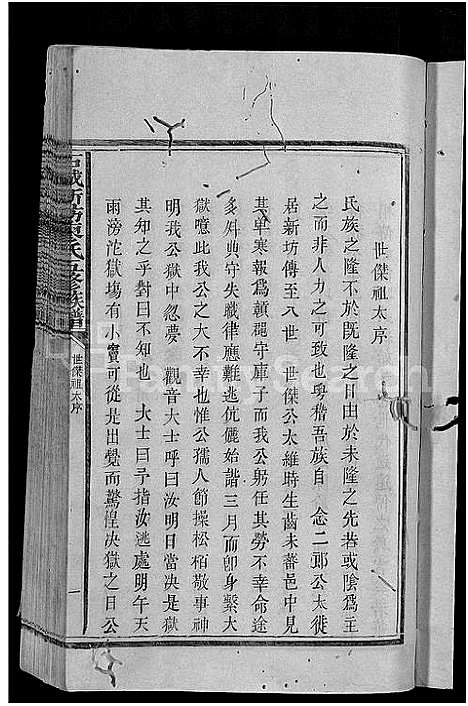 世傑祖太序
氏族之隆不於既隆之日由於未隆之先若或陰爲主
之而非人力之可致也毋稽吾族自 念二郎公太徙
居新坊傳至八世 世傑公太維時生齒未蕃邑中見
其單寒報爲贛 守庫子而我公躬任其勞不幸命途
多舛典守失職律應難逃伉儷始諧三月而卽身繫大
獄噫此公之大不幸也惟公孺人節操松柏敬事神
明我公獄中忽夢 觀音大士呼曰汝明日當决是獄
其知之乎對曰不知也 大士曰予指汝逃處明午天
雨滂沱獄塲有小竇可從是出覺而驚惶决獄之日公
氏五修族譜
世傑祖太序
一